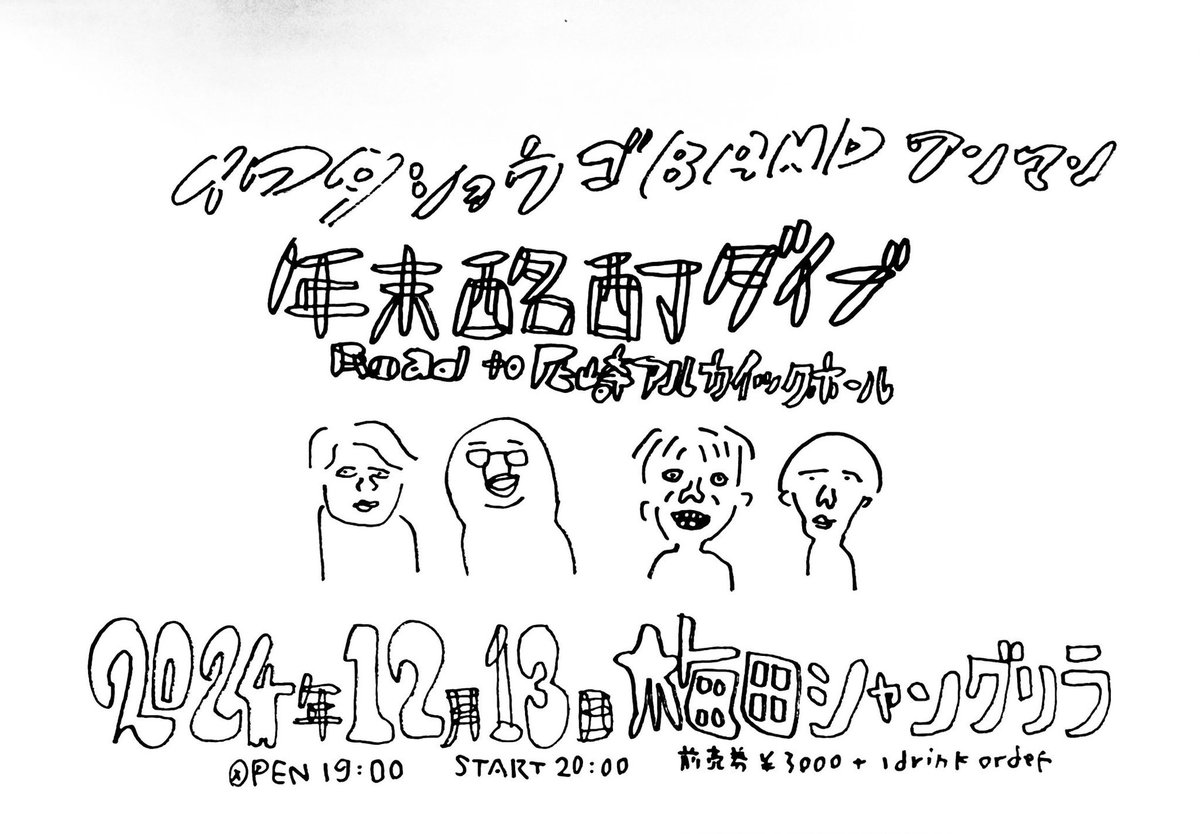 イワタショウゴBAND ワンマン
年末酩酊ダイブ
Road to 尼崎アルカイックホール
2024年12月13日 梅田シャングリラ
OPEN 19:00 START 20:00 前売券 ¥3000 + 1drink order